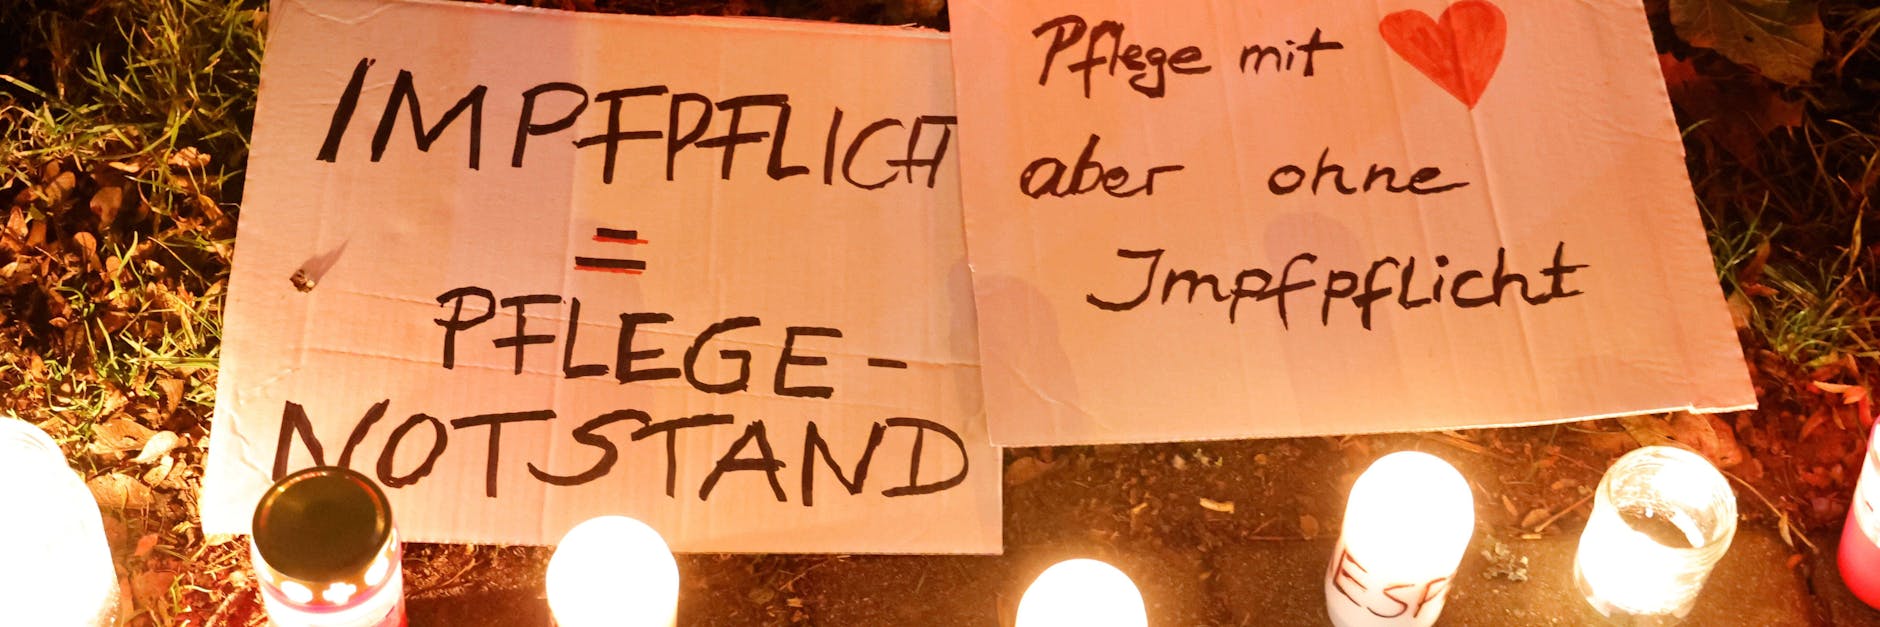 IMPFPFLICHT
=
PFLEGE-
NOTSTAND
Pflege mit
aber ohne
Impfpflicht
ESP